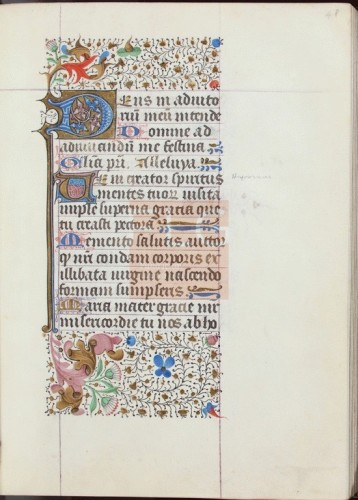 48
Deus in adiuto
riū meū intende
Domine ad
adiuuandū me festina
Glia pri. Alleluya.
Veni creator spiritus
mentes tuorȝ visita
imple superna gracia que
tu creasti pectora
Memento salutis auctor
q nri condam corporis ex
illibata uirgine nascendo
formam sumpseris
Maria mater gracie mr
misericordie tu nos ab ho